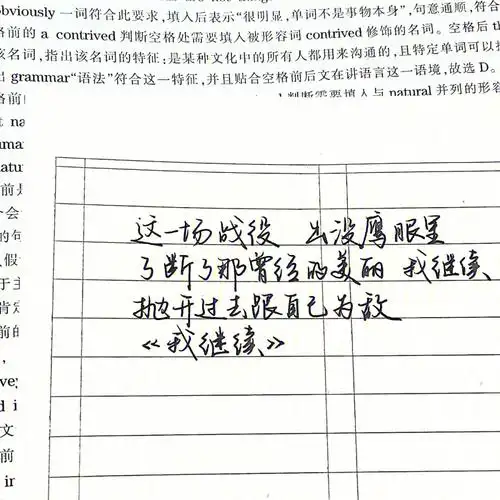 obviously 一词符合此要求,填入后表示“很明显,单词不是事物本身”,句意通顺,符合
格前的 a contrived 判断空格处需要填入被形容词 contrived 修饰的名词。空格后 th
该名词,指出该名词的特征:是某种文化中的所有人都用来沟通的,且特定单词可以
出 grammar“语法”符合这一特征,并且贴合空格前后文在讲语言这一语境,故选 D。
判断需要填入与 natural 并列的形容
这一场战役 出没鹰眼里
了断了那曾经的美丽 我继续
抛开过去跟自己为敌
《我继续》